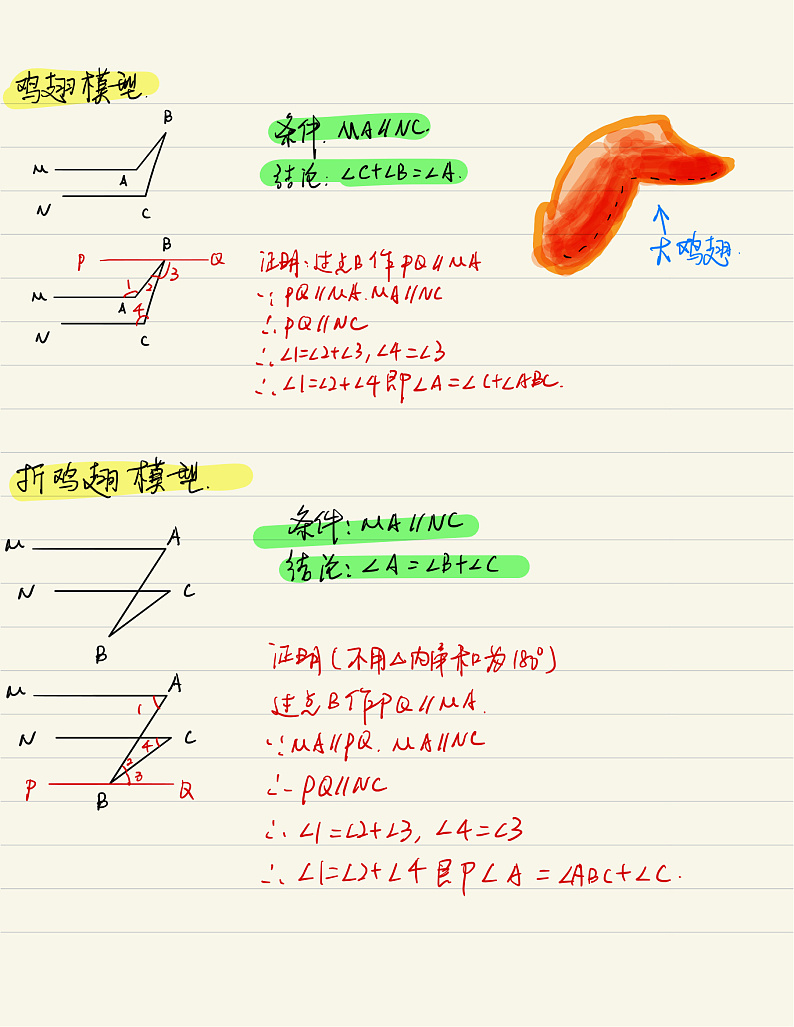 鸡翅模型.
B
M
A
N
C
条件: MA∥NC.
结论: ∠C+∠B=∠A.
大鸡翅.
P
B
Q
1
2
3
M
A
4
N
C
证明:过点B作PQ∥MA
∵PQ∥MA.MA∥NC
∴PQ∥NC
∴∠1=∠2+∠3,∠4=∠3
∴∠1=∠2+∠4即∠A=∠C+∠ABC.
折鸡翅模型.
M
A
N
C
B
条件: MA∥NC
结论: ∠A=∠B+∠C
M
A
1
N
4
C
2
3
P
B
Q
证明(不用△内角和为180°)
过点B作PQ∥MA.
∵MA∥PQ.MA∥NC
∴PQ∥NC
∴∠1=∠2+∠3,∠4=∠3
∴∠1=∠2+∠4即∠A=∠ABC+∠C.